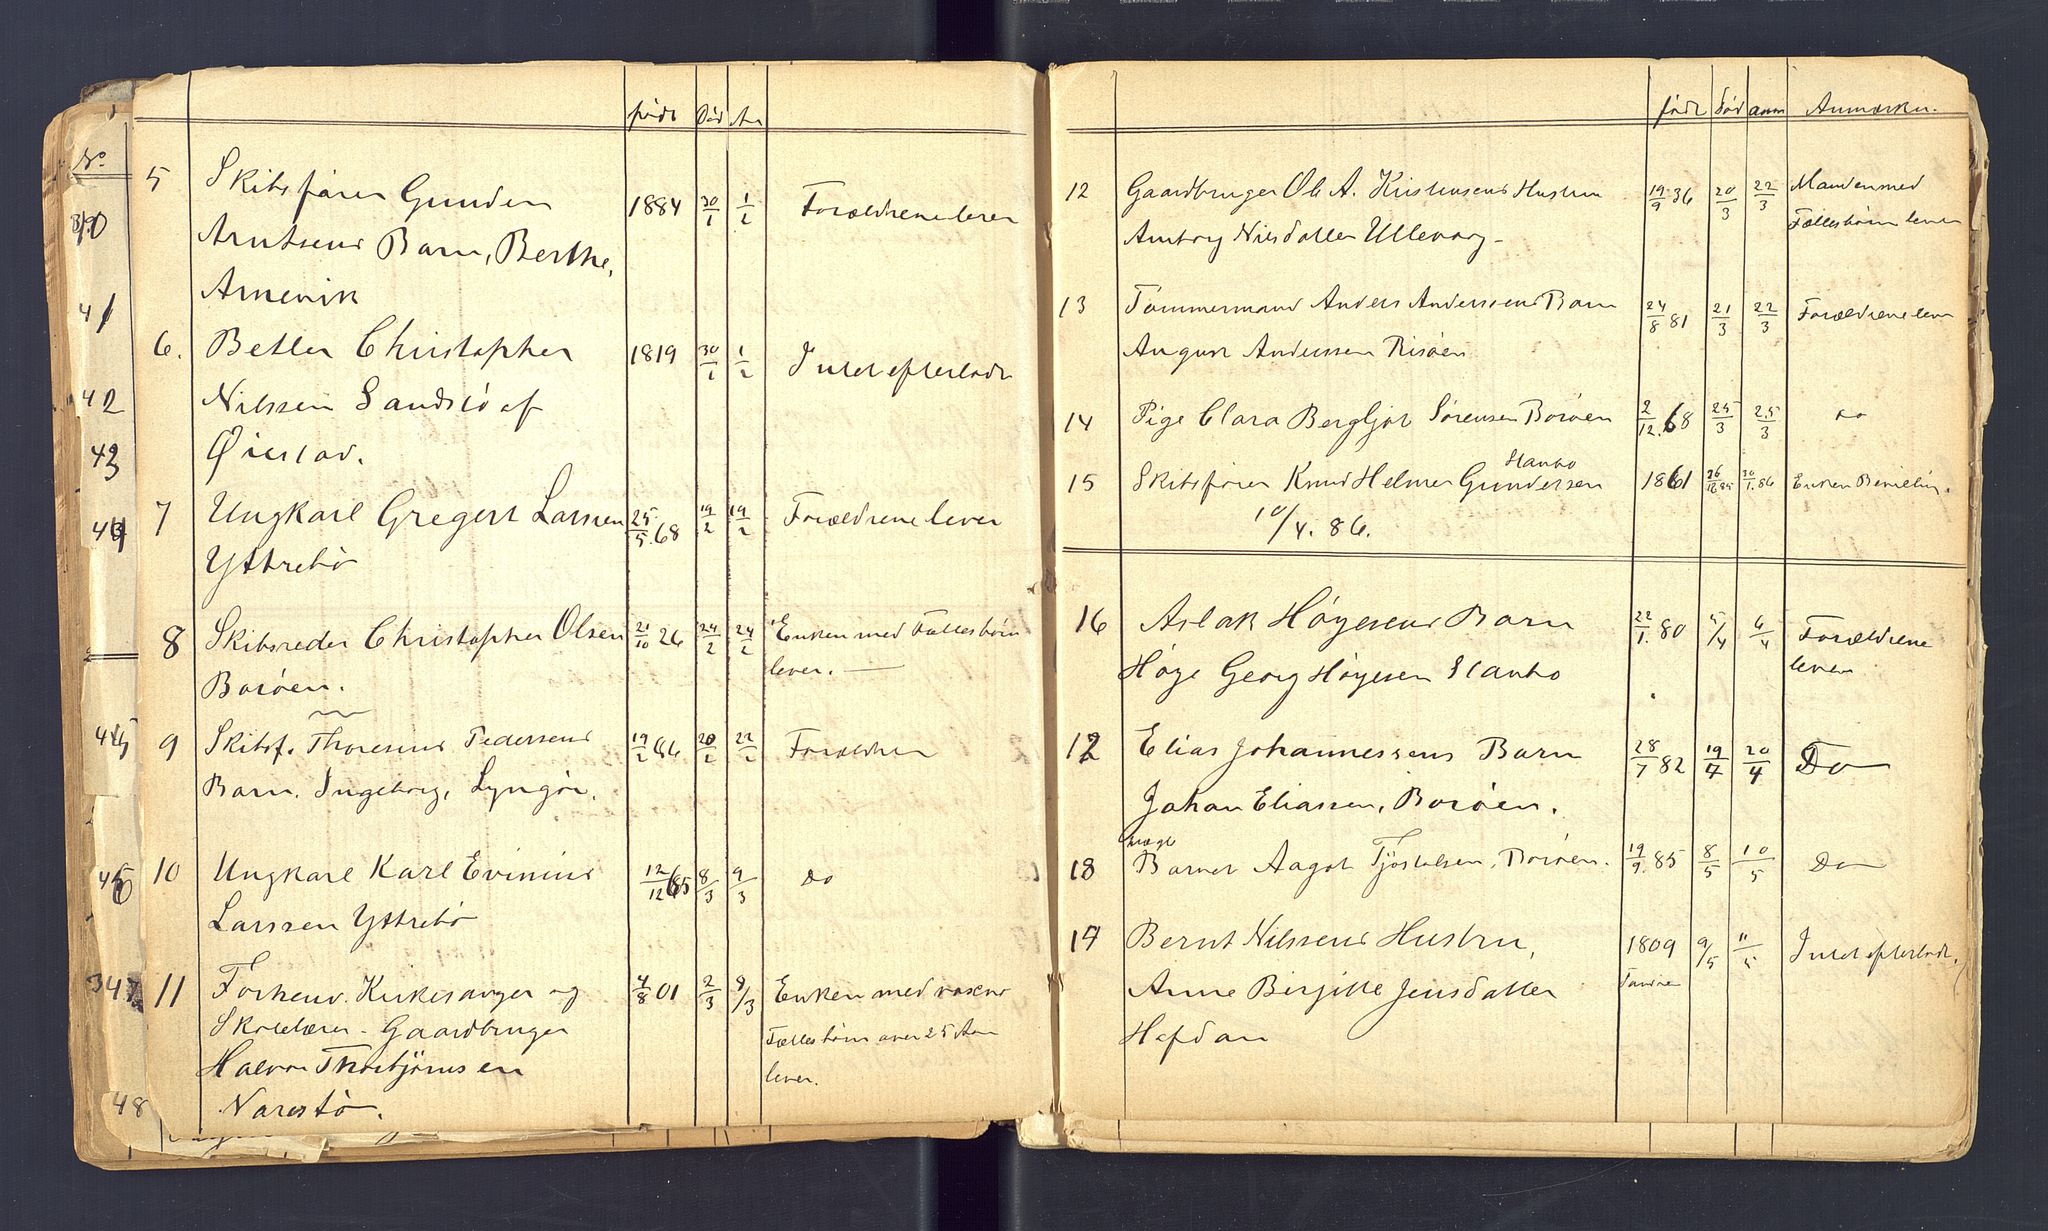 født Død An
No
5 Skibsfører Gunder 1884 30/1 1/2 Forældrene lever
Arntsens Barn, Berthe,
Arnevik
6. Betler Christopher 1819 30/1 1/2 Intet efterladt
Nilssen Sandslø af
Øiestad.
7 Ungkarl Gregert Larssen 25/5.68 19/2 19/2 Forældrene lever
Yttrebø
8 Skibsreder Christopher Olsen 21/10 26 24/2 24/2 Enken med Fællesbørn
Borøen. lever.
9 Skibsf. Thoresens Pedersens 19/2 86 20/2 22/2 Forældrene
Barn. Ingeborg, Lyngør.
10 Ungkarl Karl Evinius 12/12 65 8/3 9/3 Do
Larssen Yttrebø
11 Forhenv. Kirkesanger og 4/8 01 2/3 9/3 Enken med voxene
Skolelærer - Gaardbruger Fællesbørn over 25 Aar
Halvor Thorbjørnsen lever.
Narestø.
41
42
43
48
født Død anm Anmærkn.
12 Gaardbruger Ole A. Kristensens Hustru 19/9 36 20/3 22/3 Manden med
Amborg Nilsdatter Ullevorg - Fællesbørn lever
13 Tømmermand Anders Anderssens Barn 24/8 81 21/3 22/3 Forældrene lever
August Anderssen Risøen
14 Pige Clara Bergljot Sørensen Borøen 2/12.68 25/3 25/3 Do
Stanbo
15 Skibsfører Knud Helmer Gundersen 1861 26/12 85 30/1.86 Enken
10/4.86.
16 Aslak Høyesens Barn 22/1. 80 5/4 6/4 Forældrene
Høye Georg Høyesen Stanbo lever
17 Elias Johannessens Barn 28/7 82 19/4 20/4 Do
Johan Eliassen, Borøen.
18 Barnet Aagot Tjøstelsen, Borøen. 19/9.85 8/5 10/5 Do
19 Bernt Nilssens Hustru, 1809 9/5 11/5 Intet efterladt.
Anne Birgitte Jensdatter
Hefdan